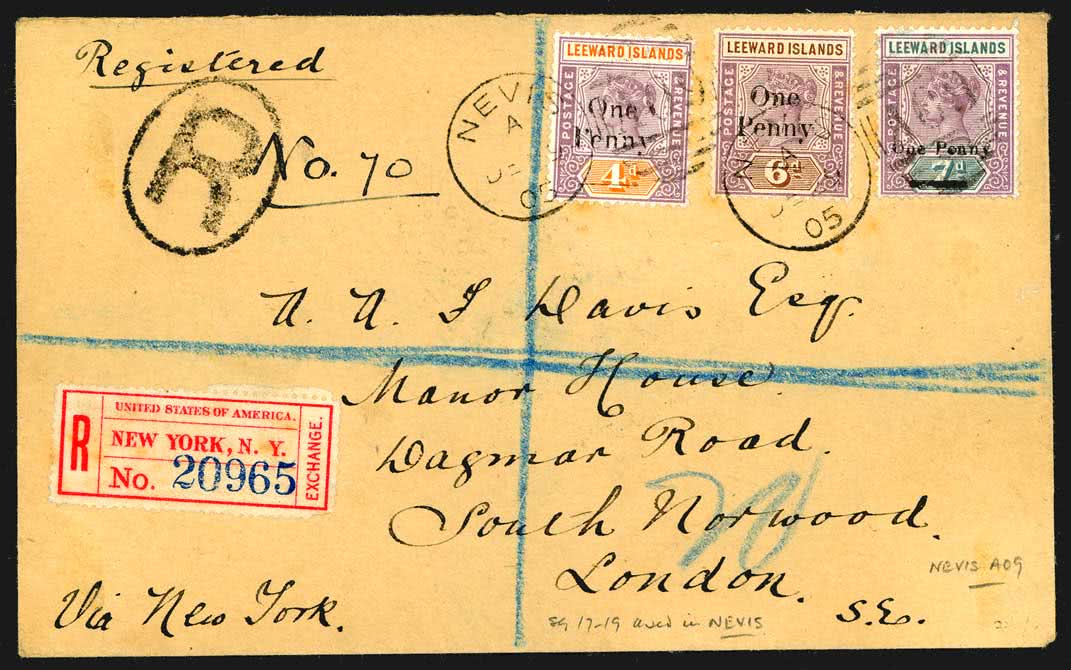 Registered
R
No. 70
NEVIS
A
05
LEEWARD ISLANDS
POSTAGE & REVENUE
One
Penny.
4d
LEEWARD ISLANDS
POSTAGE & REVENUE
One
Penny.
6d
N
A
05
LEEWARD ISLANDS
POSTAGE & REVENUE
One Penny
7d
Davis Esqr.
Manor House
Dagmar Road.
South Norwood.
London.
S.E.
R
UNITED STATES OF AMERICA.
NEW YORK, N. Y.
No. 20965
EXCHANGE.
Via New York.
NEVIS A09
SG 17-19 used in NEVIS